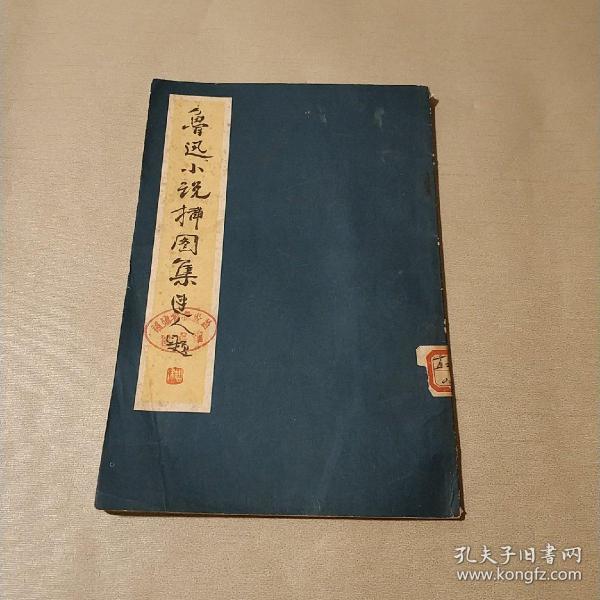 鲁迅小说插图集 建人题
孔夫子旧书网
www.kongfz.com